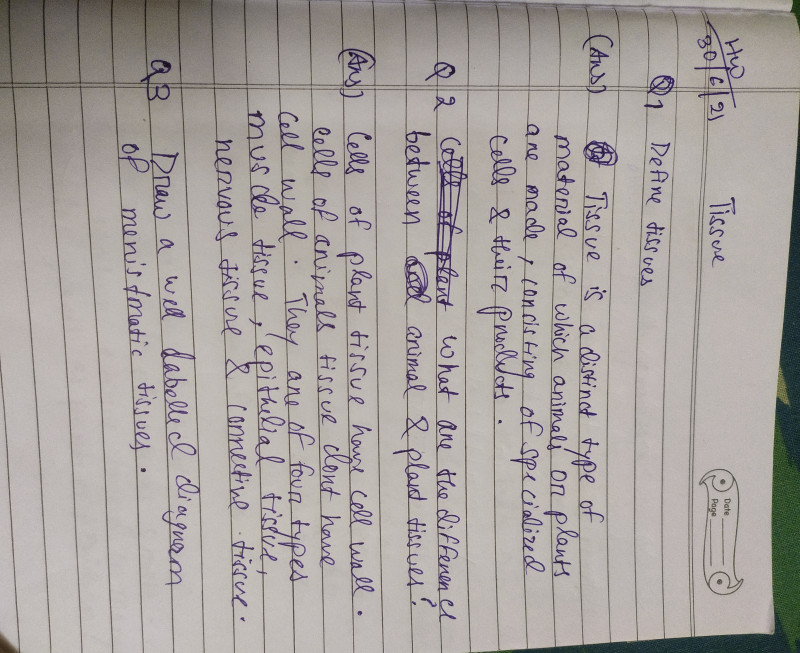 HW
30/6/21
Tissue
Date
Page
Q1 Define tissues
(Ans) Tissue is a distinct type of
material of which animals or plants
are made, consisting of specialized
cells & their products.
Q2 Cells of plant what are the difference
between and animal & plant tissues?
(Ans) Cells of plant tissue have cell wall.
Cells of animals tissue dont have
cell wall. They are of four types
muscle tissue, epithelial tissue,
nervous tissue & connective tissue.
Q3 Draw a well labelled diagram
of meristmatic tissues.